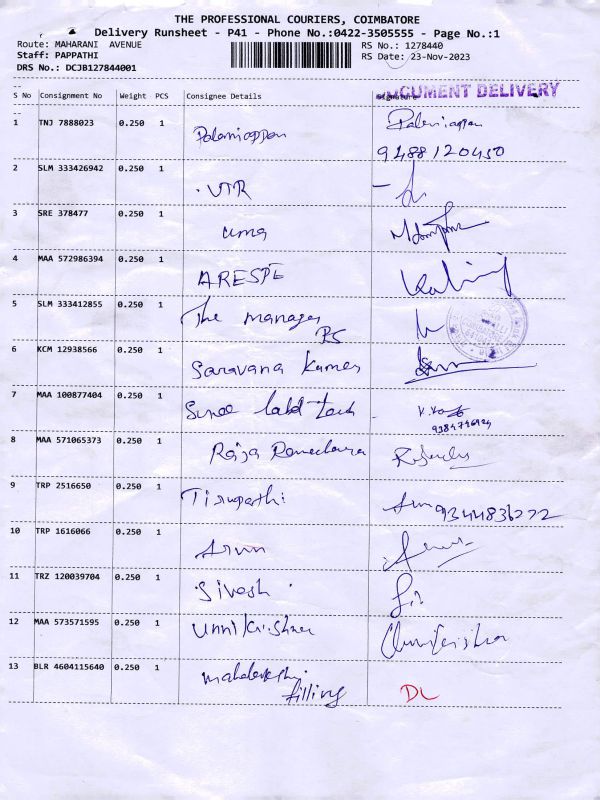 THE PROFESSIONAL COURIERS, COIMBATORE
Delivery Runsheet - P41 - Phone No.:0422-3505555 - Page No.:1
Route: MAHARANI AVENUE RS No.: 1278440
Staff: PAPPATHI RS Date: 23-Nov-2023
DRS No.: DCJB127844001
DOCUMENT DELIVERY
S No Consignment No Weight PCS Consignee Details Signature
1 TNJ 7888023 0.250 1 Palaniappan Palaniappan
9488120450
2 SLM 333426942 0.250 1 VTR
3 SRE 378477 0.250 1 uma
4 MAA 572986394 0.250 1 ARESPE
5 SLM 333412855 0.250 1 The manager
PS
6 KCM 12938566 0.250 1 Saravana Kumar
7 MAA 100877404 0.250 1
8 MAA 571065373 0.250 1 Raja
9 TRP 2516650 0.250 1 Tirupathi 9344836272
10 TRP 1616066 0.250 1 Arun
11 TRZ 120039704 0.250 1 Sivesh
12 MAA 573571595 0.250 1 Unnikrishnan Unnikrishnan
13 BLR 4604115640 0.250 1
filling DL